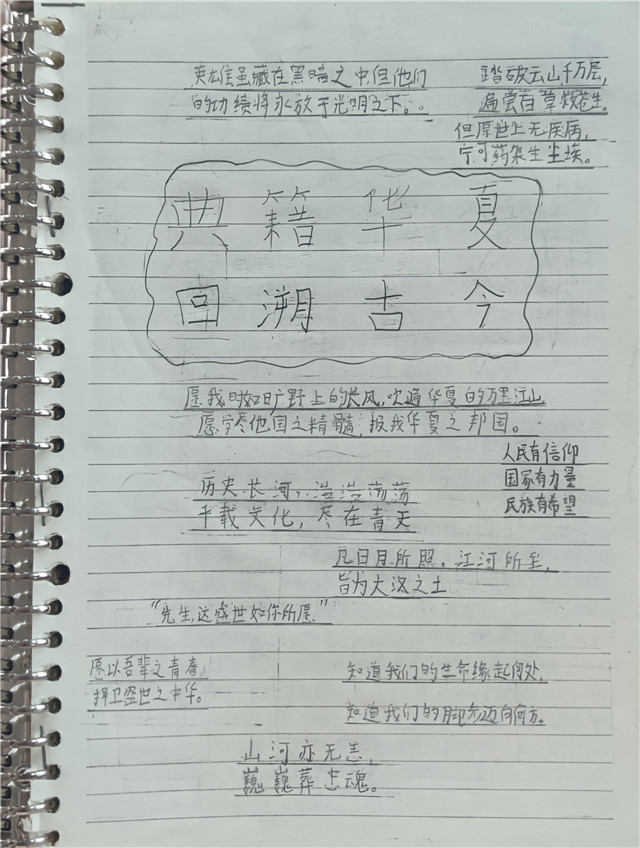 英雄虽藏在黑暗之中,但他们
的功绩将永放于光明之下。
踏破云山千万层,
遍尝百草救苍生。
但愿世上无疾病,
宁可药架生尘埃。
典籍华夏
回溯古今
愿我时如旷野上的长风,吹遍华夏的万里江山
愿学尽他国之精髓,报我华夏之邦国。
人民有信仰
国家有力量
民族有希望
历史长河,浩浩荡荡
千载文化,尽在青天
凡日月所照,江河所至,
皆为大汉之土
"先生,这盛世如你所愿"
愿以吾辈之青春,
捍卫盛世之中华。
知道我们的生命缘起何处,
知道我们的脚步迈向何方。
山河亦无恙,
巍巍葬忠魂。